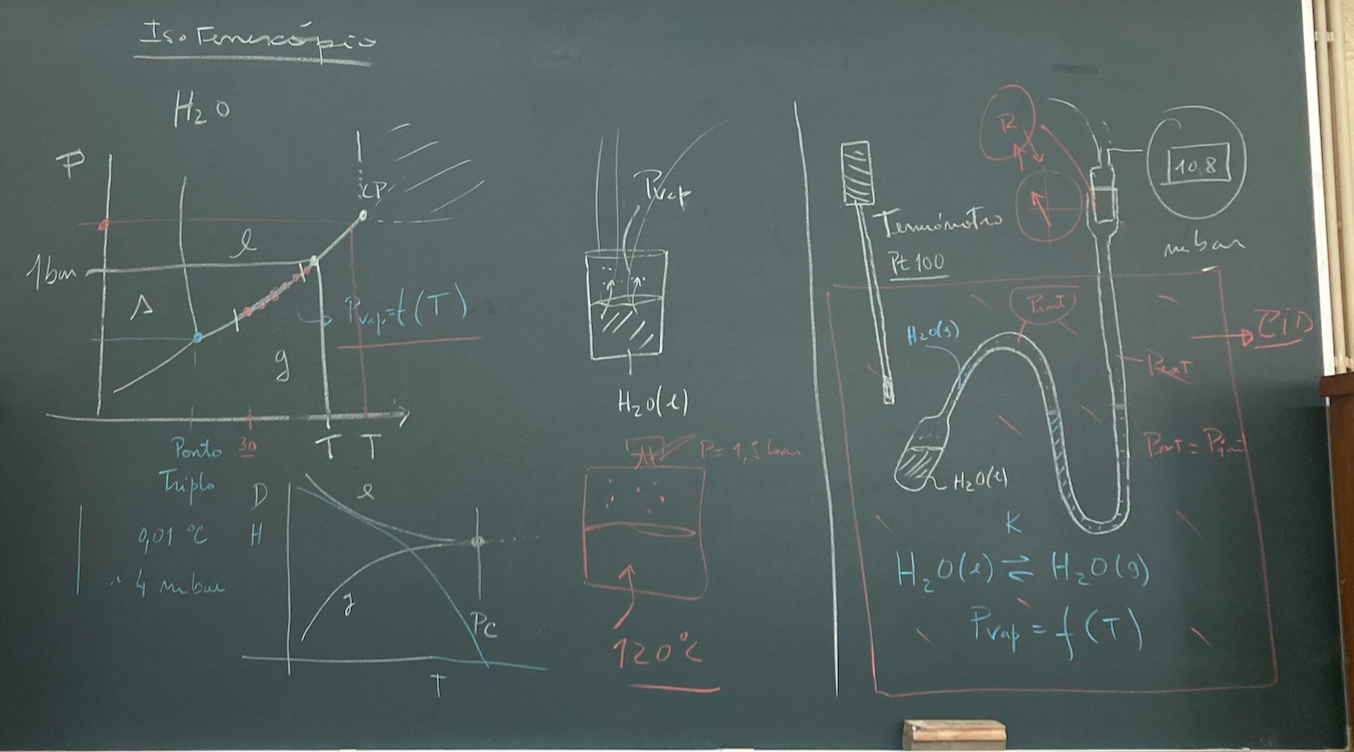 Isoteniscópio
H2O
P
CP
l
1 bar
s
Pvap = f(T)
g
T T
Ponto
Triplo
30
0,01 °C
~ 4 mbar
D
H
l
g
Pc
T
Pvap
H2O(l)
P = 1,5 bar
120°C
Termómetro
Pt 100
R
10.8
mbar
Pint
PID
H2O(g)
Pext
Pext = Pint
H2O(l)
K
H2O(l) ⇌ H2O(g)
Pvap = f(T)